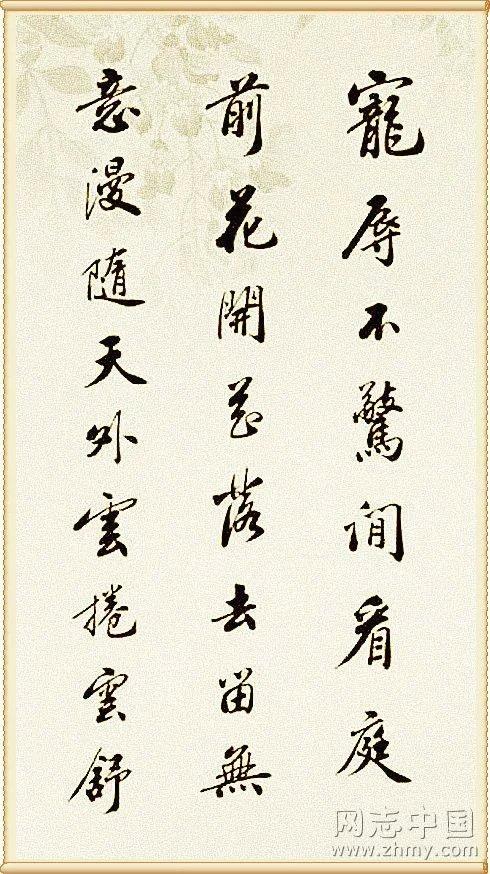 寵辱不驚閒看庭
前花開花落去留無
意漫隨天外雲捲雲舒
网志中国
www.zhmy.com